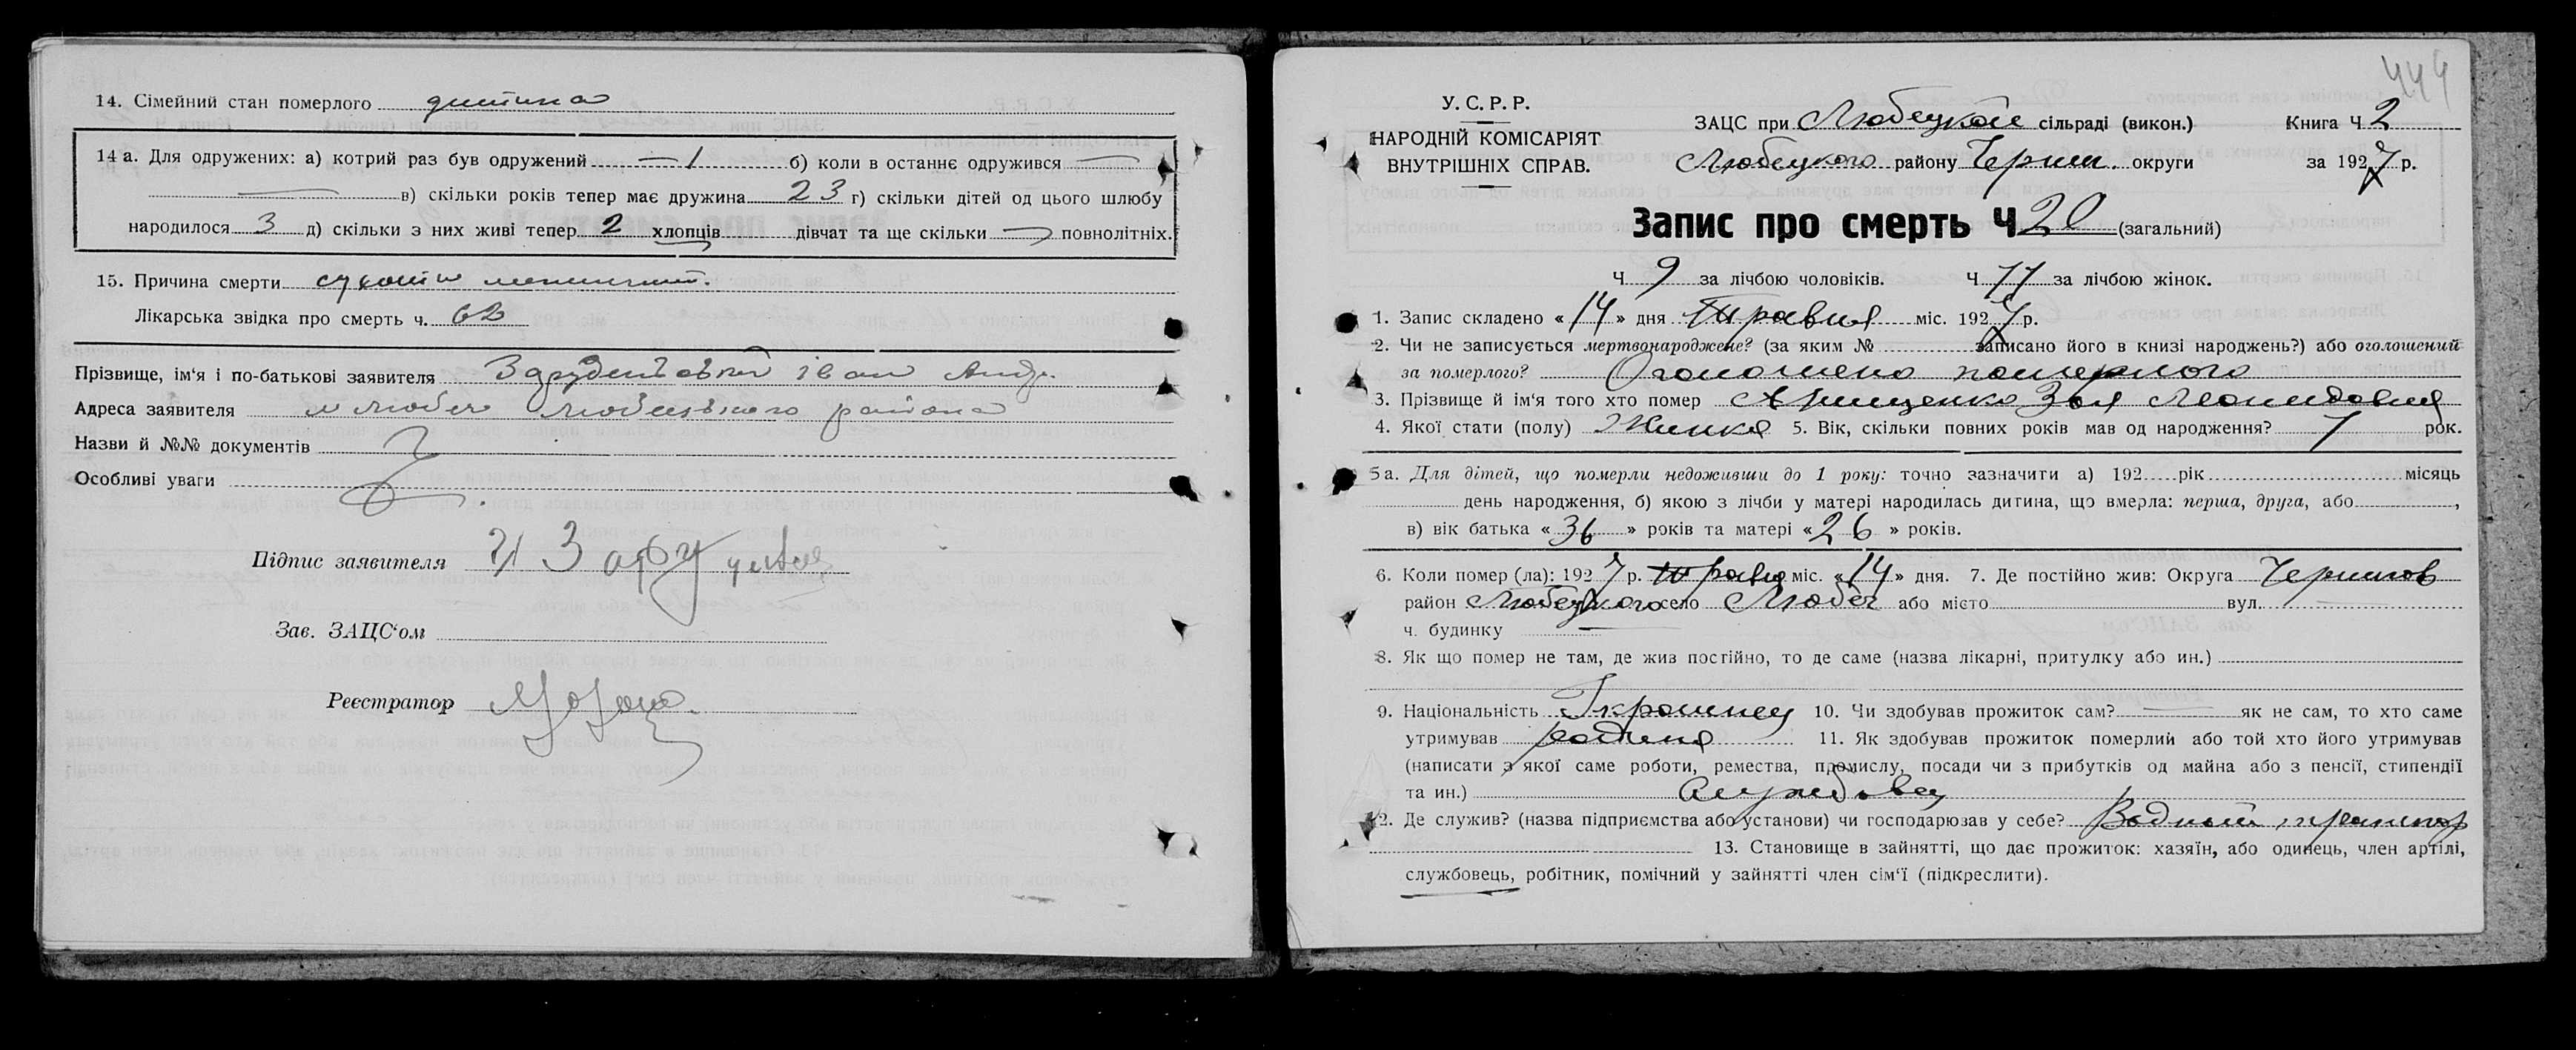 14. Сімейний стан померлого дитина
14 а. Для одружених: а) котрий раз був одружений — 1 б) коли в останнє одружився —
— в) скільки років тепер має дружина 23 г) скільки дітей од цього шлюбу
народилося 3 д) скільки з них живі тепер 2 хлопців дівчат та ще скільки — повнолітніх.
15. Причина смерти
Лікарська звідка про смерть ч. 62
Прізвище, ім'я і по-батькові заявителя Іван Андр.
Адреса заявителя м Любеч Любецького района
Назви й №№ документів
Особливі уваги
Підпис заявителя
Зав. ЗАЦС'ом
Реєстратор
444
У. С. Р. Р.
НАРОДНІЙ КОМІСАРІЯТ
ВНУТРІШНІХ СПРАВ.
ЗАЦС при Любецкой сільраді (викон.) Книга Ч 2
Любецкого району Черниг. округи за 1927 р.
Запис про смерть Ч 20 (загальний)
Ч 9 за лічбою чоловіків. Ч 11 за лічбою жінок.
1. Запис складено « 14 » дня Травня міс. 1927 р.
2. Чи не записується мертвонароджене? (за яким № записано його в книзі народжень?) або оголошений
за померлого? Оголошено померлого
3. Прізвище й ім'я того хто помер Леонидовна
4. Якої стати (полу) Жинка 5. Вік, скільки повних років мав од народження? 1 рок.
5а. Для дітей, що померли недоживши до 1 року: точно зазначити а) 192 рік місяць
день народження, б) якою з лічби у матері народилась дитина, що вмерла: перша, друга, або ,
в) вік батька « 36 » років та матері « 26 » років.
6. Коли помер (ла): 1927 р. Травня міс. « 14 » дня. 7. Де постійно жив: Округа Чернигов
район Любецкого село Любеч або місто вул. —
ч. будинку —
8. Як що помер не там, де жив постійно, то де саме (назва лікарні, притулку або ин.)
9. Національність Украинец 10. Чи здобував прожиток сам? — як не сам, то хто саме
утримував родина 11. Як здобував прожиток померлий або той хто його утримував
(написати з якої саме роботи, ремества, промислу, посади чи з прибутків од майна або з пенсії, стипендії
та ин.) Службовец
12. Де служив? (назва підприємства або установи) чи господарював у себе? Водный транспор
13. Становище в зайнятті, що дає прожиток: хазяїн, або одинець, член артілі,
службовець, робітник, помічний у зайнятті член сім'ї (підкреслити).